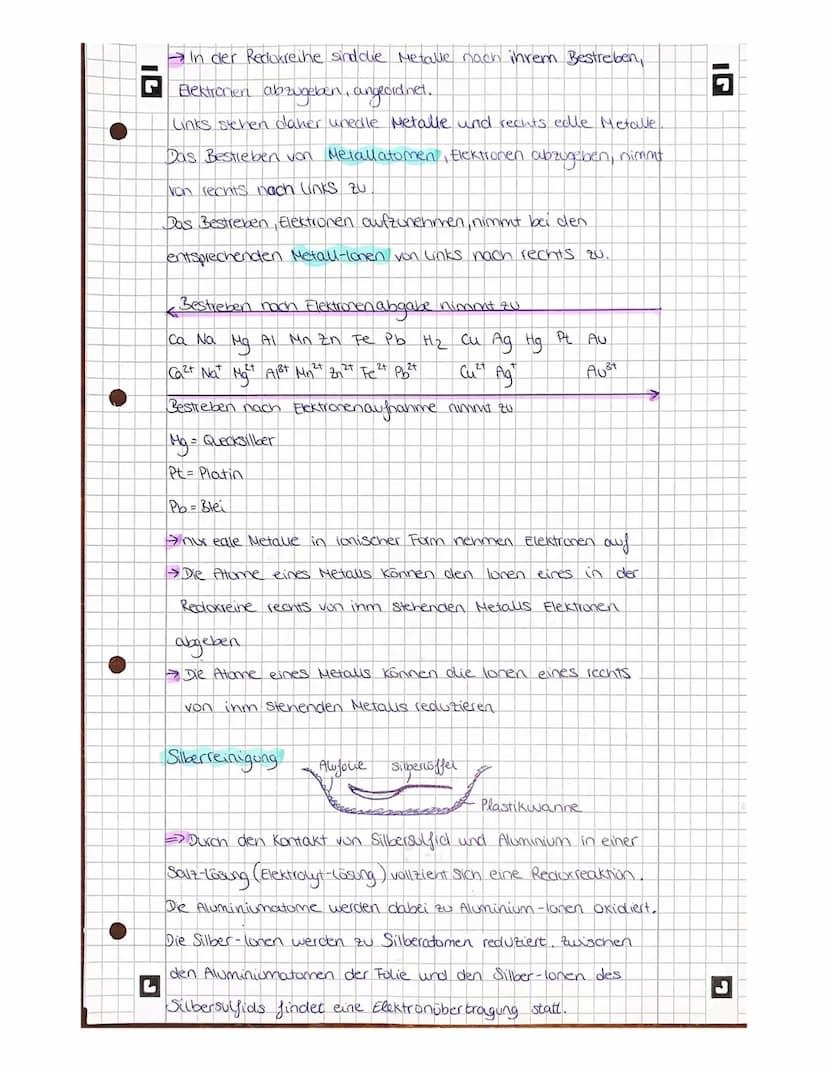 → In der Redoxreihe sind die Metalle nach ihrem Bestreben,
Elektronen abzugeben, angeordnet.
Links stehen daher unedle Metalle und rechts edle Metalle.
Das Bestreben von Metallatomen, Elektronen abzugeben, nimmt
von rechts nach links zu.
Das Bestreben, Elektronen aufzunehmen, nimmt bei den
entsprechenden Metall-Ionen von links nach rechts zu.
Bestreben nach Elektronenabgabe nimmt zu
Ca Na Mg Al Mn Zn Fe Pb H₂ Cu Ag Hg Pt Au
Ca²⁺ Na⁺ Mg²⁺ Al³⁺ Mn²⁺ Zn²⁺ Fe²⁺ Pb²⁺ Cu²⁺ Ag⁺ Au³⁺
Bestreben nach Elektronenaufnahme nimmt zu
Hg = Quecksilber
Pt = Platin
Pb = Blei
→ nur edle Metalle in ionischer Form nehmen Elektronen auf
→ Die Atome eines Metalls können den Ionen eines in der
Redoxreihe rechts von ihm stehenden Metalls Elektronen
abgeben
→ Die Atome eines Metalls können die Ionen eines rechts
von ihm stehenden Metalls reduzieren
Silberreinigung
Alufolie Silberlöffel
Plastikwanne
⇒ Durch den Kontakt von Silbersulfid und Aluminium in einer
Salz-Lösung (Elektrolyt-Lösung) vollzieht sich eine Redoxreaktion.
Die Aluminiumatome werden dabei zu Aluminium-Ionen oxidiert.
Die Silber-Ionen werden zu Silberatomen reduziert. Zwischen
den Aluminiumatomen der Folie und den Silber-Ionen des
Silbersulfids findet eine Elektronübertragung statt.